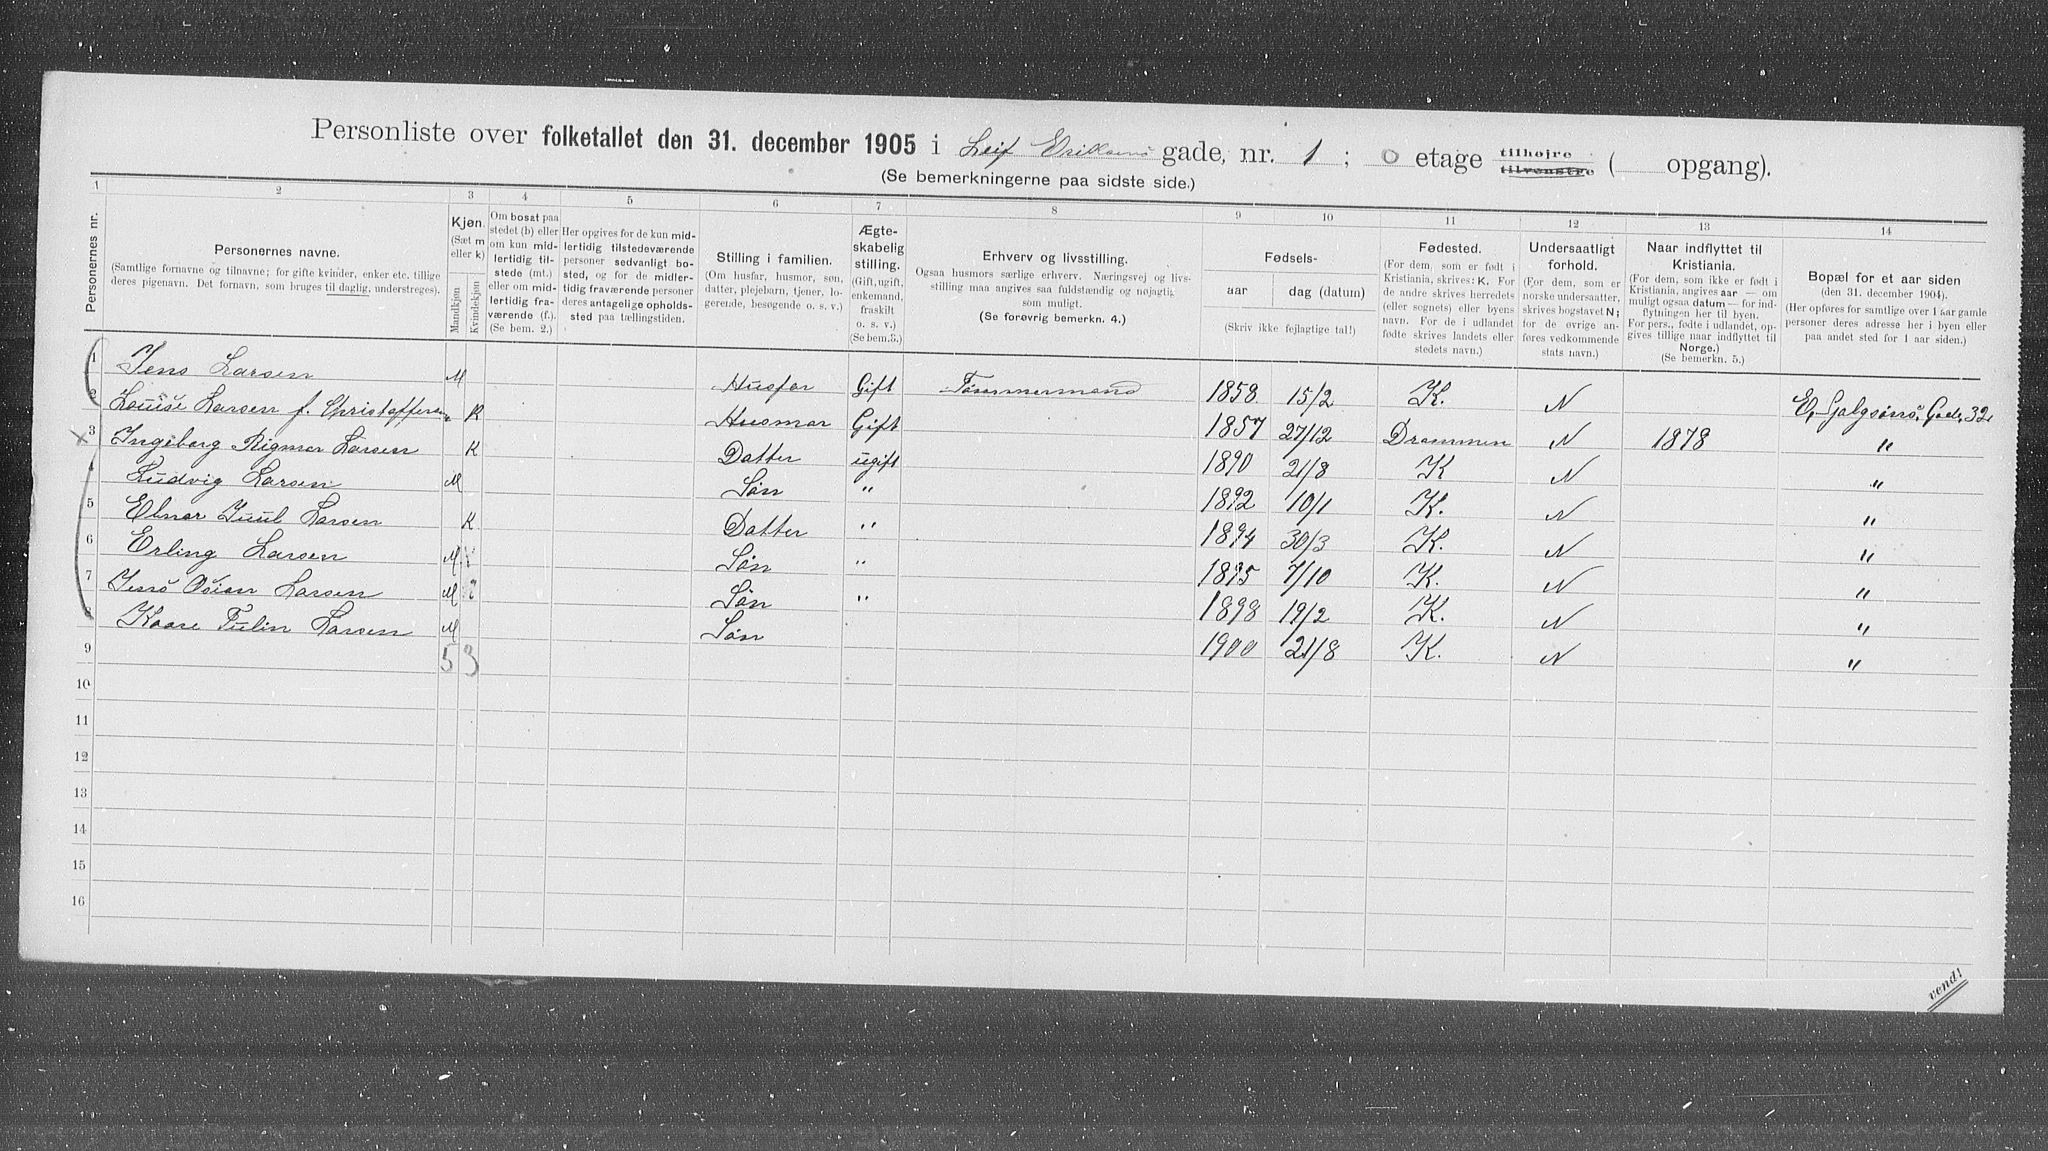 Personliste over folketallet den 31. december 1905 i Leif Eriksens gade, nr. 1 ; 0 etage tilhøjre tilvenstre ( opgang).
(Se bemerkningerne paa sidste side.)
1 2 3 4 5 6 7 8 9 10 11 12 13 14
Personernes nr.
Personernes navne.
(Samtlige fornavne og tilnavne; for gifte kvinder, enker etc. tillige
deres pigenavn. Det fornavn, som bruges til daglig, understreges).
Kjøn.
(Sæt m
eller k)
Mandkjøn
Kvindekjøn
Om bosat paa
stedet (b) eller
om kun mid-
lertidig til-
stede (mt.)
eller om mid-
lertidig fra-
værende (f.).
(Se bem. 2.)
Her opgives for de kun mid-
lertidig tilstedeværende
personer sedvanligt bo-
sted, og for de midler-
tidig fraværende personer
deres antagelige opholds-
sted paa tællingstiden.
Stilling i familien.
(Om husfar, husmor, søn,
datter, plejebarn, tjener, lo-
gerende, besøgende o. s. v.)
Ægte-
skabelig
stilling.
(Gift, ugift,
enkemand,
fraskilt
o. s. v.)
(Se bem. 3.)
Erhverv og livsstilling.
Ogsaa husmors særlige erhverv. Næringsvej og livs-
stilling maa angives saa fuldstændig og nøjagtig
som muligt.
(Se forøvrig bemerkn. 4.)
Fødsels-
aar dag (datum)
(Skriv ikke fejlagtige tal!)
Fødested.
(For dem, som er født i
Kristiania, skrives: K. For
de andre skrives herredets
(eller sognets) eller byens
navn. For de i udlandet
fødte skrives landets eller
stedets navn.)
Undersaatligt
forhold.
(For dem, som er
norske undersaatter,
skrives bogstavet N;
for de øvrige an-
føres vedkommende
stats navn.)
Naar indflyttet til
Kristiania.
(For dem, som ikke er født i
Kristiania, angives aar — om
muligt ogsaa datum — for ind-
flytningen her til byen.
For pers., fødte i udlandet, op-
gives tillige naar indflyttet til
Norge.)
(Se bemerkn. 5.)
Bopæl for et aar siden
(den 31. december 1904).
(Her opføres for samtlige over 1 aar gamle
personer deres adresse her i byen eller
paa andet sted for 1 aar siden.)
1 Jens Larsen M Husfar Gift Tømmermand 1858 15/2 K. N 32
2 Louise Larsen f. Christoffersen K Husmor Gift 1857 27/12 Drammen N 1878 "
3 Ingeborg Rigmor Larsen K Datter ugift 1890 21/8 K N "
4 Ludvig Larsen M Søn " 1892 10/1 K. N "
5 Elnar Juul Larsen K Datter " 1894 30/3 K. N "
6 Erling Larsen M Søn " 1895 7/10 K. N "
7 Jens Osian Larsen M Søn " 1898 19/2 K. N "
8 Kaare Tulin Larsen M Søn 1900 21/8 K. N "
9 5 3
10
11
12
13
14
15
16
vend!